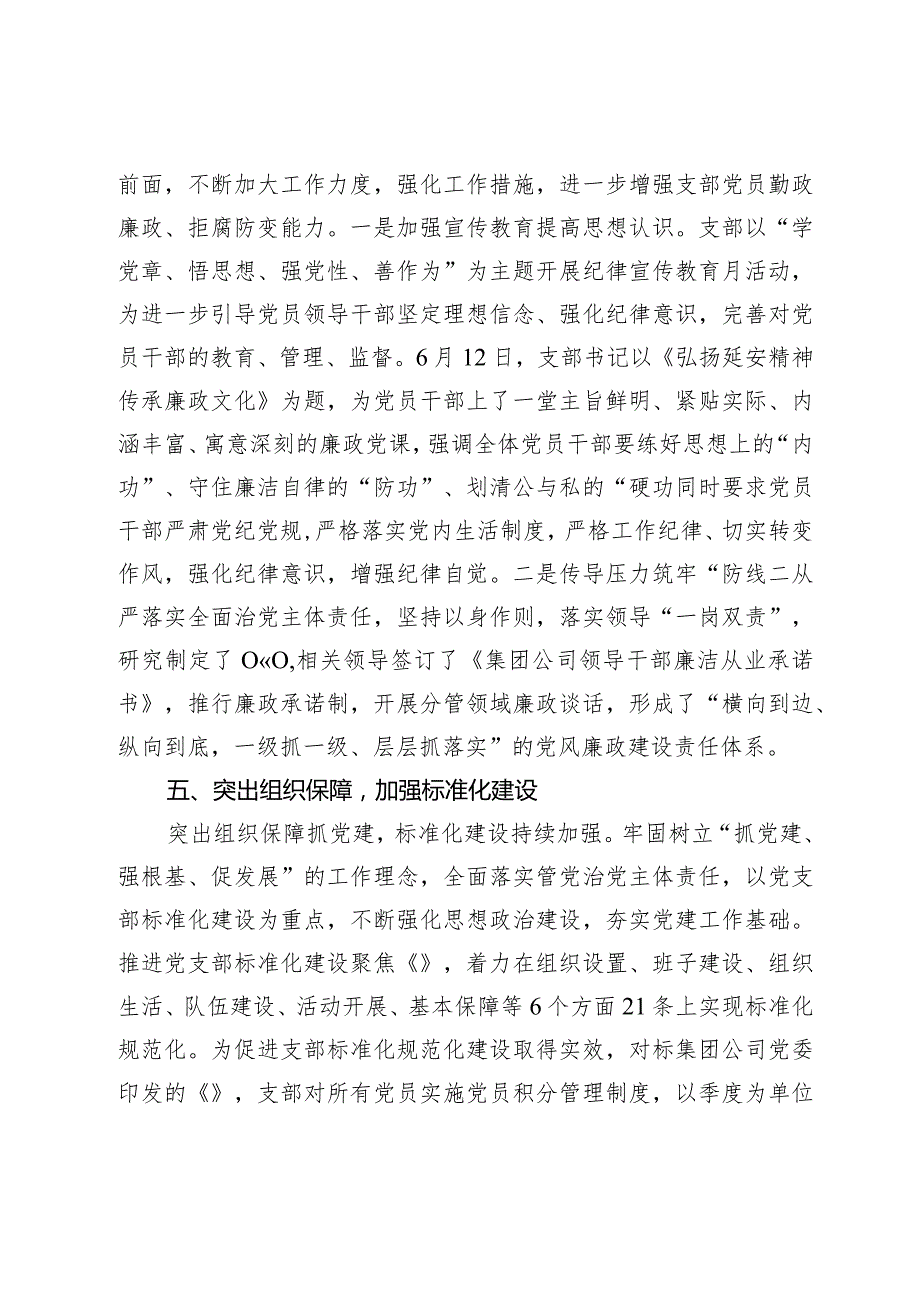 前面，不断加大工作力度，强化工作措施，进一步增强支部党员勤政
廉政、拒腐防变能力。一是加强宣传教育提高思想认识。支部以“学
党章、悟思想、强党性、善作为”为主题开展纪律宣传教育月活动，
为进一步引导党员领导干部坚定理想信念、强化纪律意识，完善对党
员干部的教育、管理、监督。6月12日，支部书记以《弘扬延安精神
传承廉政文化》为题，为党员干部上了一堂主旨鲜明、紧贴实际、内
涵丰富、寓意深刻的廉政党课，强调全体党员干部要练好思想上的“内
功”、守住廉洁自律的“防功”、划清公与私的“硬功同时要求党员
干部严肃党纪党规,严格落实党内生活制度，严格工作纪律、切实转变
作风，强化纪律意识，增强纪律自觉。二是传导压力筑牢“防线二从
严落实全面治党主体责任，坚持以身作则，落实领导“一岗双责”，
研究制定了O«O,相关领导签订了《集团公司领导干部廉洁从业承诺
书》，推行廉政承诺制，开展分管领域廉政谈话，形成了“横向到边、
纵向到底，一级抓一级、层层抓落实”的党风廉政建设责任体系。
五、突出组织保障，加强标准化建设
突出组织保障抓党建，标准化建设持续加强。牢固树立“抓党建、
强根基、促发展”的工作理念，全面落实管党治党主体责任，以党支
部标准化建设为重点，不断强化思想政治建设，夯实党建工作基础。
推进党支部标准化建设聚焦《》，着力在组织设置、班子建设、组织
生活、队伍建设、活动开展、基本保障等6个方面21条上实现标准化
规范化。为促进支部标准化规范化建设取得实效，对标集团公司党委
印发的《》，支部对所有党员实施党员积分管理制度，以季度为单位